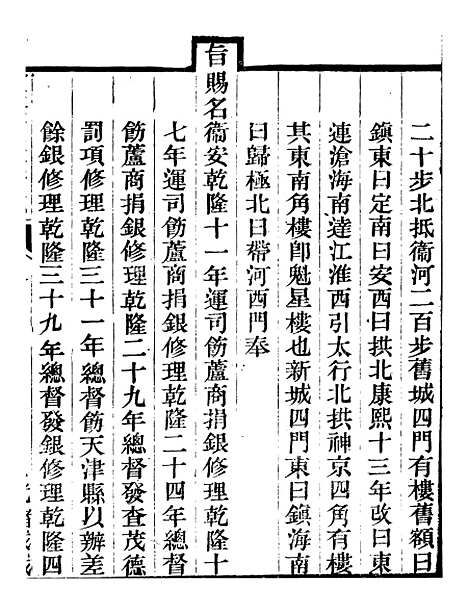 二十步北抵衞河二百步舊城四門有樓舊額曰
鎮東曰定南曰安西曰拱北康熙十三年改曰東
連滄海南達江淮西引太行北拱神京四角有樓
其東南角樓卽魁星樓也新城四門東曰鎮海南
曰歸極北曰帶河西門奉
旨賜名衞安乾隆十一年運司飭蘆商捐銀修理乾隆十
七年運司飭蘆商捐銀修理乾隆二十四年總督
飭蘆商捐銀修理乾隆二十九年總督發查茂德
罰項修理乾隆三十一年總督飭天津縣以辦差
餘銀修理乾隆三十九年總督發銀修理乾隆四